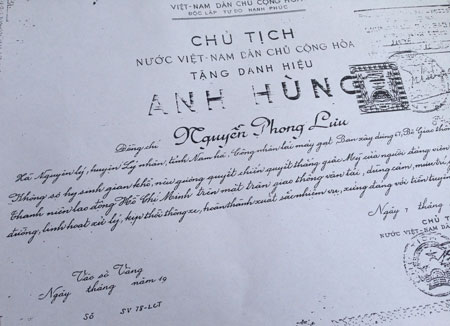 VIỆT-NAM DÂN CHỦ CỘNG HÒA
ĐỘC LẬP TỰ DO HẠNH PHÚC
CHỦ TỊCH
NƯỚC VIỆT-NAM DÂN CHỦ CỘNG HÒA
TẶNG DANH HIỆU
ANH HÙNG
Đồng chí Nguyễn Phong Lưu
Xã Nguyên lý, huyện Lý nhân, tỉnh Nam hà. Công nhân lái máy gạt Ban xây dựng 67, Bộ Giao thông
Không sợ hy sinh gian khổ, nêu gương quyết chiến quyết thắng giặc Mỹ của người đảng viên
Thanh niên lao động Hồ Chí Minh trên mặt trận giao thông vận tải, dũng cảm, mưu trí
đường, linh hoạt xử lý, kịp thời thông xe, hoàn thành xuất sắc nhiệm vụ, xứng đáng với tiền tuyến
Ngày tháng
CHỦ T
NƯỚC VIỆT-NAM DÂN
Vào sổ Vàng
Ngày tháng năm 19
Số SV 78-LCT